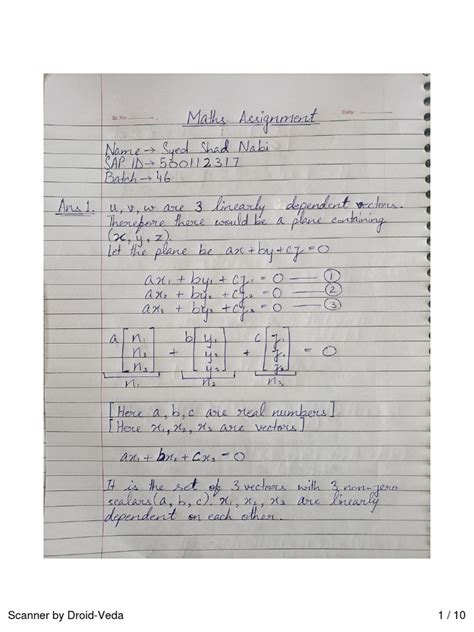 Sr. No.
Date :
Maths Assignment
Name → Syed Shad Nabi
SAP ID → 500112317
Batch → 46
Ans 1. u, v, w are 3 linearly dependent vectors.
Therefore there would be a plane containing
(x, y, z).
Let the plane be ax + by + cz = 0
ax₁ + by₁ + cz₁ = 0 — ①
ax₂ + by₂ + cz₂ = 0 — ②
ax₃ + by₃ + cz₃ = 0 — ③
a [x₁ x₂ x₃] + b [y₁ y₂ y₃] + c [z₁ z₂ z₃] = 0
x₁ x₂ x₃
[Here a, b, c are real numbers]
[Here x₁, x₂, x₃ are vectors]
ax₁ + bx₂ + cx₃ = 0
It is the set of 3 vectors with 3 non-zero
scalars (a, b, c). x₁, x₂, x₃ are linearly
dependent on each other.
Scanner by Droid-Veda
1 / 10